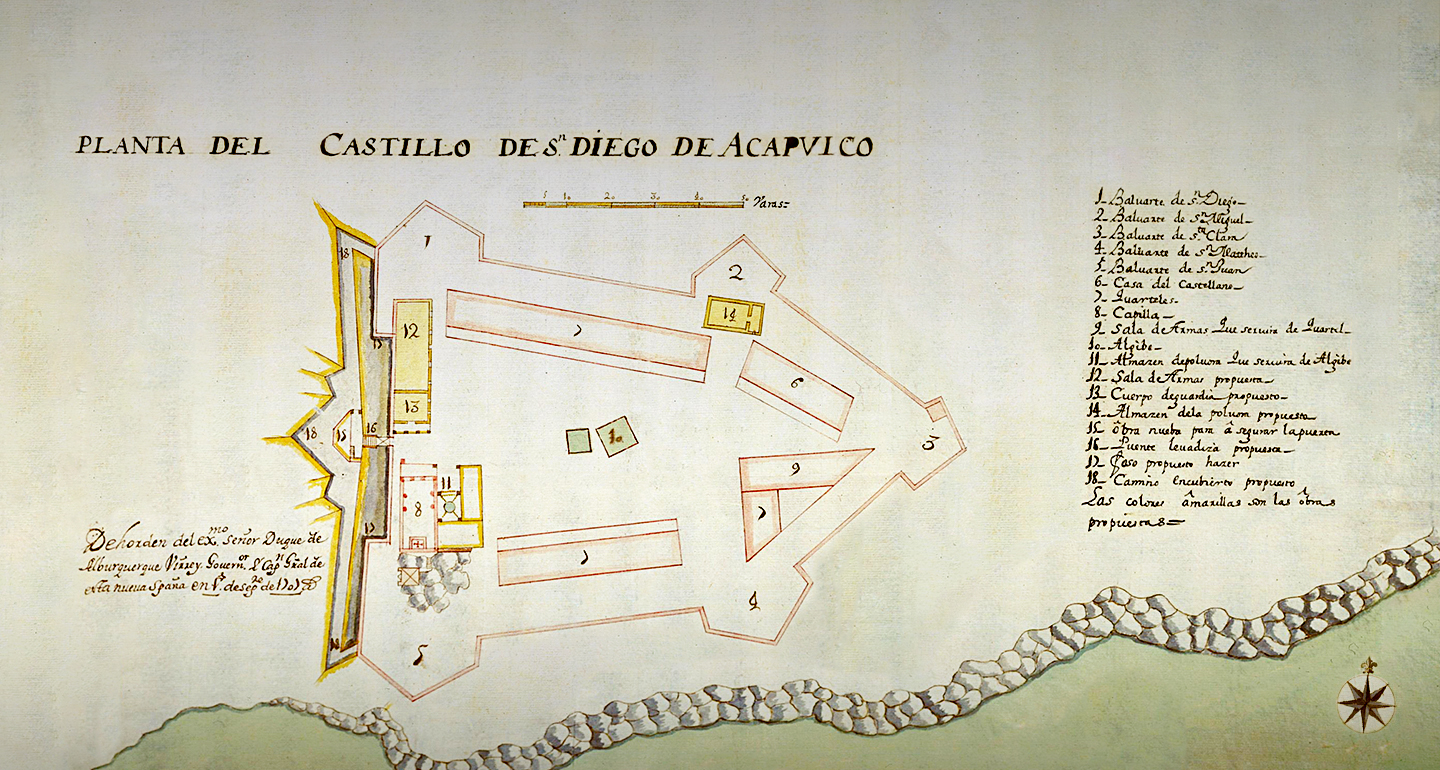 PLANTA DEL CASTILLO DE Sⁿ. DIEGO DE ACAPVLCO
5 10 20 30 40 50 Varas-
1 Baluarte de sⁿ Diego
2 Baluarte de sⁿ Miguel
3 Baluarte de sᵗᵃ Clara
4 Baluarte de sⁿ Mattheo
5 Baluarte de sⁿ Juan
6 Casa del Castellano
7 Quarteles
8 Capilla
9 Sala de Armas Que servira de Quartel
10 Algibe
11 Almazen depolvora Que servira de Algibe
12 Sala de Armas propuesta
13 Cuerpo deguardia propuesto
14 Almazen dela polvora propuesto
15 obra nueba para asegurar lapuerta
16 Puente levadiza propuesta
17 Foso propuesto hazer
18 Camino Encubierto propuesto
Las colores amarillas son las obras
propuestas =
Dehorden del exᵐᵒ. señor Duque de
Alburquerque Virrey Governᵒʳ Y Capⁿ Gral de
esta nueva spaña en
1
2
3
4
5
6
7
7
7
7
8
9
10
11
12
13
14
15
16
17
17
18
18
18